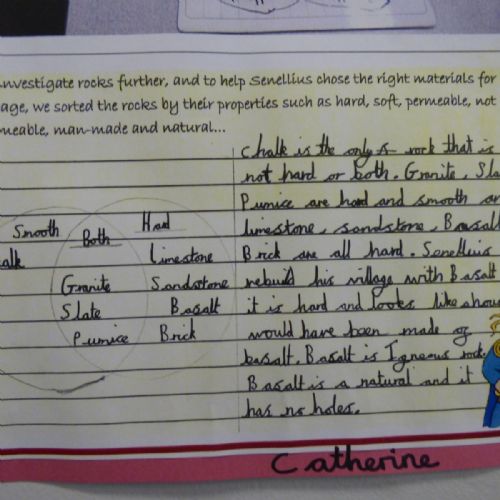 investigate rocks further, and to help Senellius chose the right materials for
age, we sorted the rocks by their properties such as hard, soft, permeable, not
meable, man-made and natural...
Smooth Both Hard
alk Limestone
Granite Sandstone
Slate Basalt
Pumice Brick
Chalk is the only rock that is
not hard or both. Granite, Sla
Pumice are hard and smooth an
limestone, sandstone, Basalt
Brick are all hard. Senellius
rebuild his village with Basalt
it is hard and looks like
would have been made of
basalt. Basalt is Igneous rock.
Basalt is a natural and it
has no holes.
Catherine